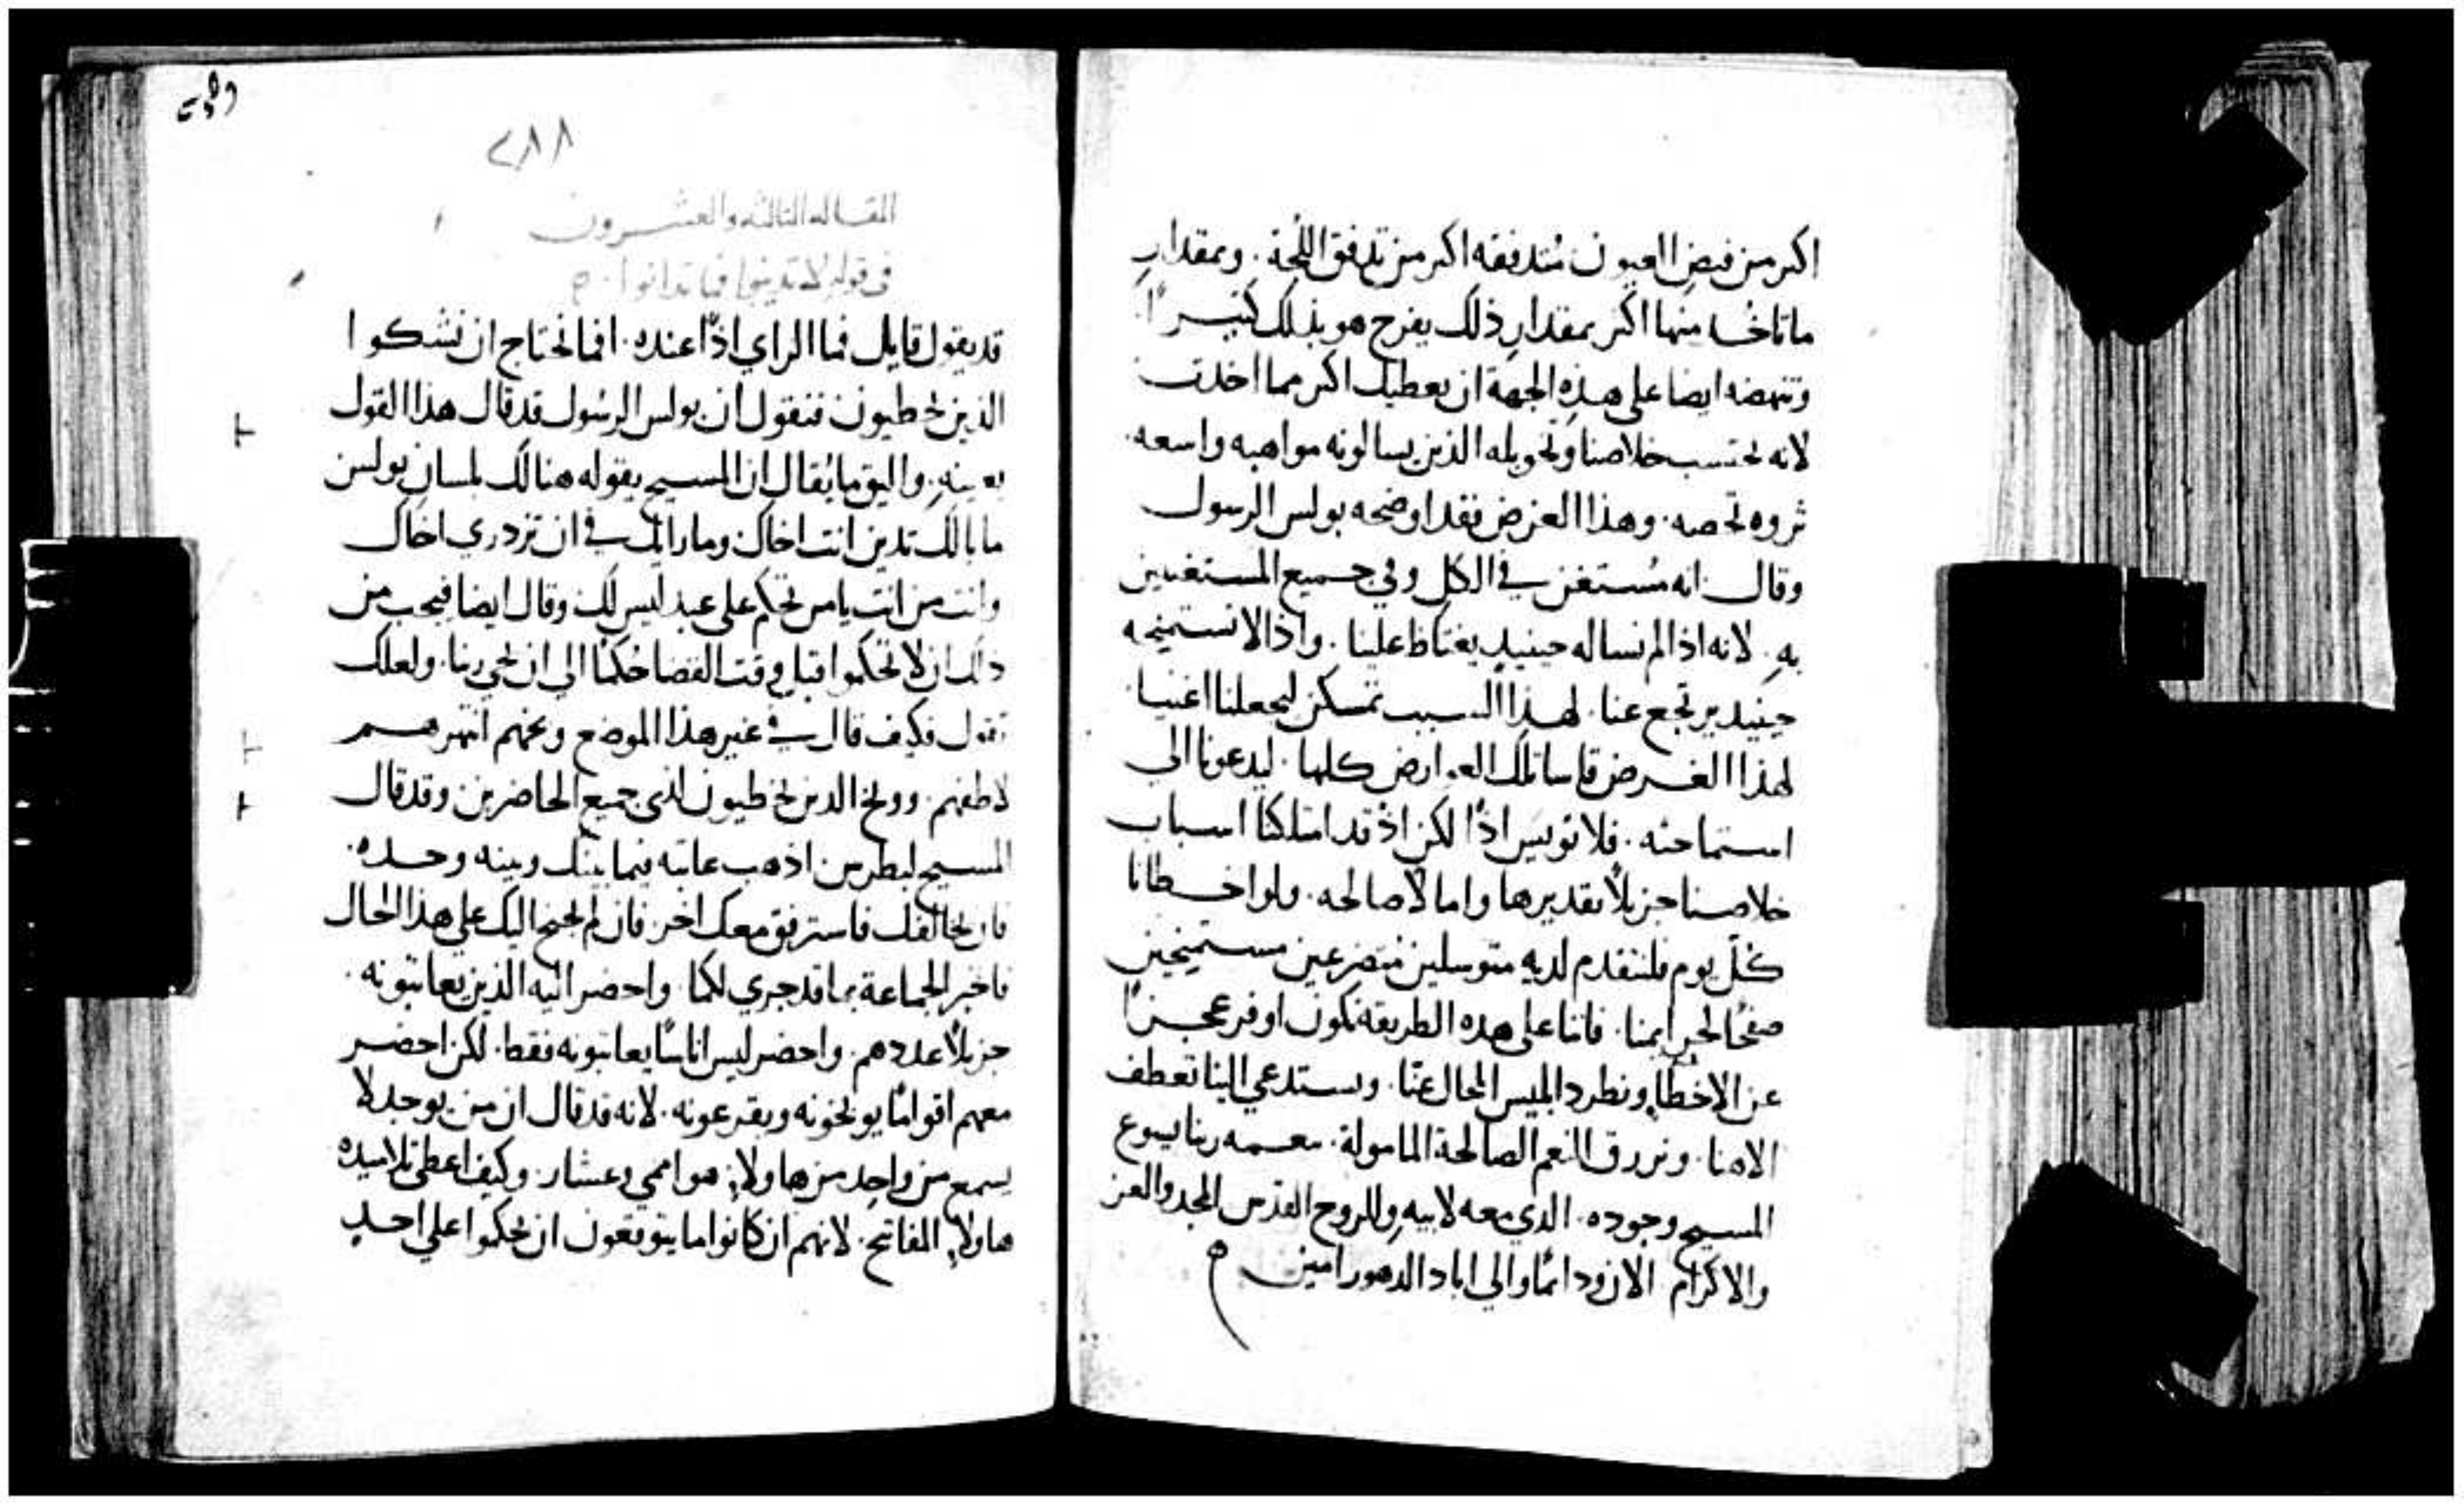 اكثر من فيض العيون متدفقه اكثر من تدفق اللجة. وبمقدار
ما تاخذ منها اكثر بمقدار ذلك يفرح هو بذلك كثيرًا.
وتنهضه ايضا على هذه الجهة ان يعطيك اكثر مما اخذت
لانه يحتسب خلاصنا وتخويله الذين يسالونه مواهبه واسعه.
ثروه تخصه. وهذا الغرض فقد اوضحه بولس الرسول
وقال انه مستغن في الكل وفي جميع المستغنيين
به. لانه اذا لم نساله حينيذٍ يغتاظ علينا. واذا لا نستمنحه
حينيد يرتجع عنا. لهذا السبب تمسكن ليجعلنا اغنيا.
لهذا الغرض قاسا تلك العوارض كلها. ليدعونا الى
استماحته. فلا نويس اذًا لكن اذ قد امتلكنا اسباب
خلاصنا جزيلًا تقديرها واما لا صالحه. ولو اخطانا
كلّ يوم فلنتقدم لديه متوسلين متضرعين مستميحين
صفحًا لجرايمنا. فاننا على هده الطريقه نكون اوفر عجزًا
عن الاخطاء ونطرد ابليس المحال عنّا. ونستدعي الينا تعطف
الاهنا. ونرزق النعم الصالحة المامولة. بنعمه ربنا يسوع
المسيح وجوده. الدي معه لابيه وللروح القدس المجد والعز
والاكرام الان ودايمًا والى اباد الدهور امين
٢٨٨
المقاله الثالثه والعشرون
في قوله لا تدينوا فما تدانوا
قد يقول قايل فما الراي اذًا عنده. افما نحتاج ان نشكوا
الذين يخطيون فنقول ان بولس الرسول قد قال هذا القول
بعينه. واليق ما يُقال ان المسيح يقوله هنالك بلسان بولس
ما بالك تدين انت اخاك وما رايك في ان تزدري اخاك
وانت من انت يا من تحكم على عبد ليس لك وقال ايضا فيجب من
ذلك ان لا تحكموا قبل وقت القضا حُكمًا الى ان يجي ربنا. ولعلك
تقول فكيف قال في غير هذا الموضع وبخهم انتهرهم
لاطفهم. ووبخ الدين يخطيون لدى جميع الحاضرين وقد قال
المسيح لبطرس اذهب عاتبه فيما بينك وبينه وحده.
فان خالفك فاسترفق معك اخر. فان لم يجنح اليك على هذا الحال
فاخبر الجماعة بما قد جرى لكما. واحضر اليه الذين يعاتبونه.
جزيلًا عددهم. واحضر ليس اناسًا يعاتبونه فقط. لكن احضر
معهم اقوامًا يوبخونه ويقرعونه. لانه قد قال ان من يوجد لا
يسمع من واحد من هاولاء هو اممي وعشار. وكيف اعطى تلاميده
هاولاء المفاتيح. لانهم ان كانوا ما يتوقعون ان يحكموا على احدٍ